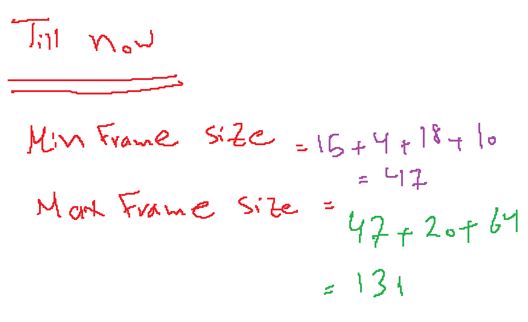 Till now
Min Frame size = 15 + 4 + 18 + 10
= 47
Max Frame size =
47 + 20 + 64
= 131